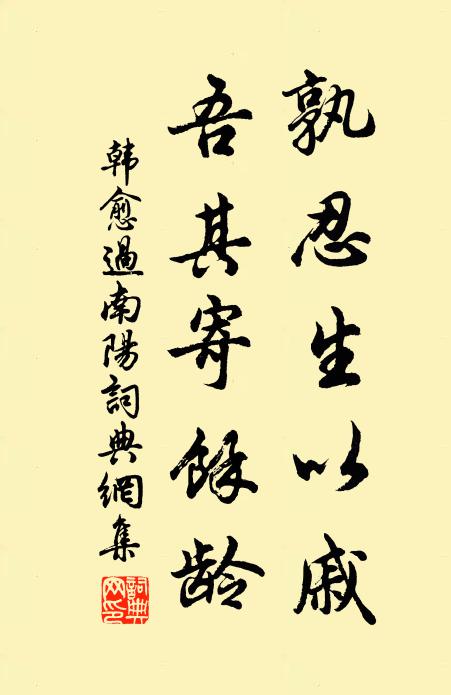 孰忍生以戚
吾其寄餘龄
韩愈過南陽詞典網集
詞典网印